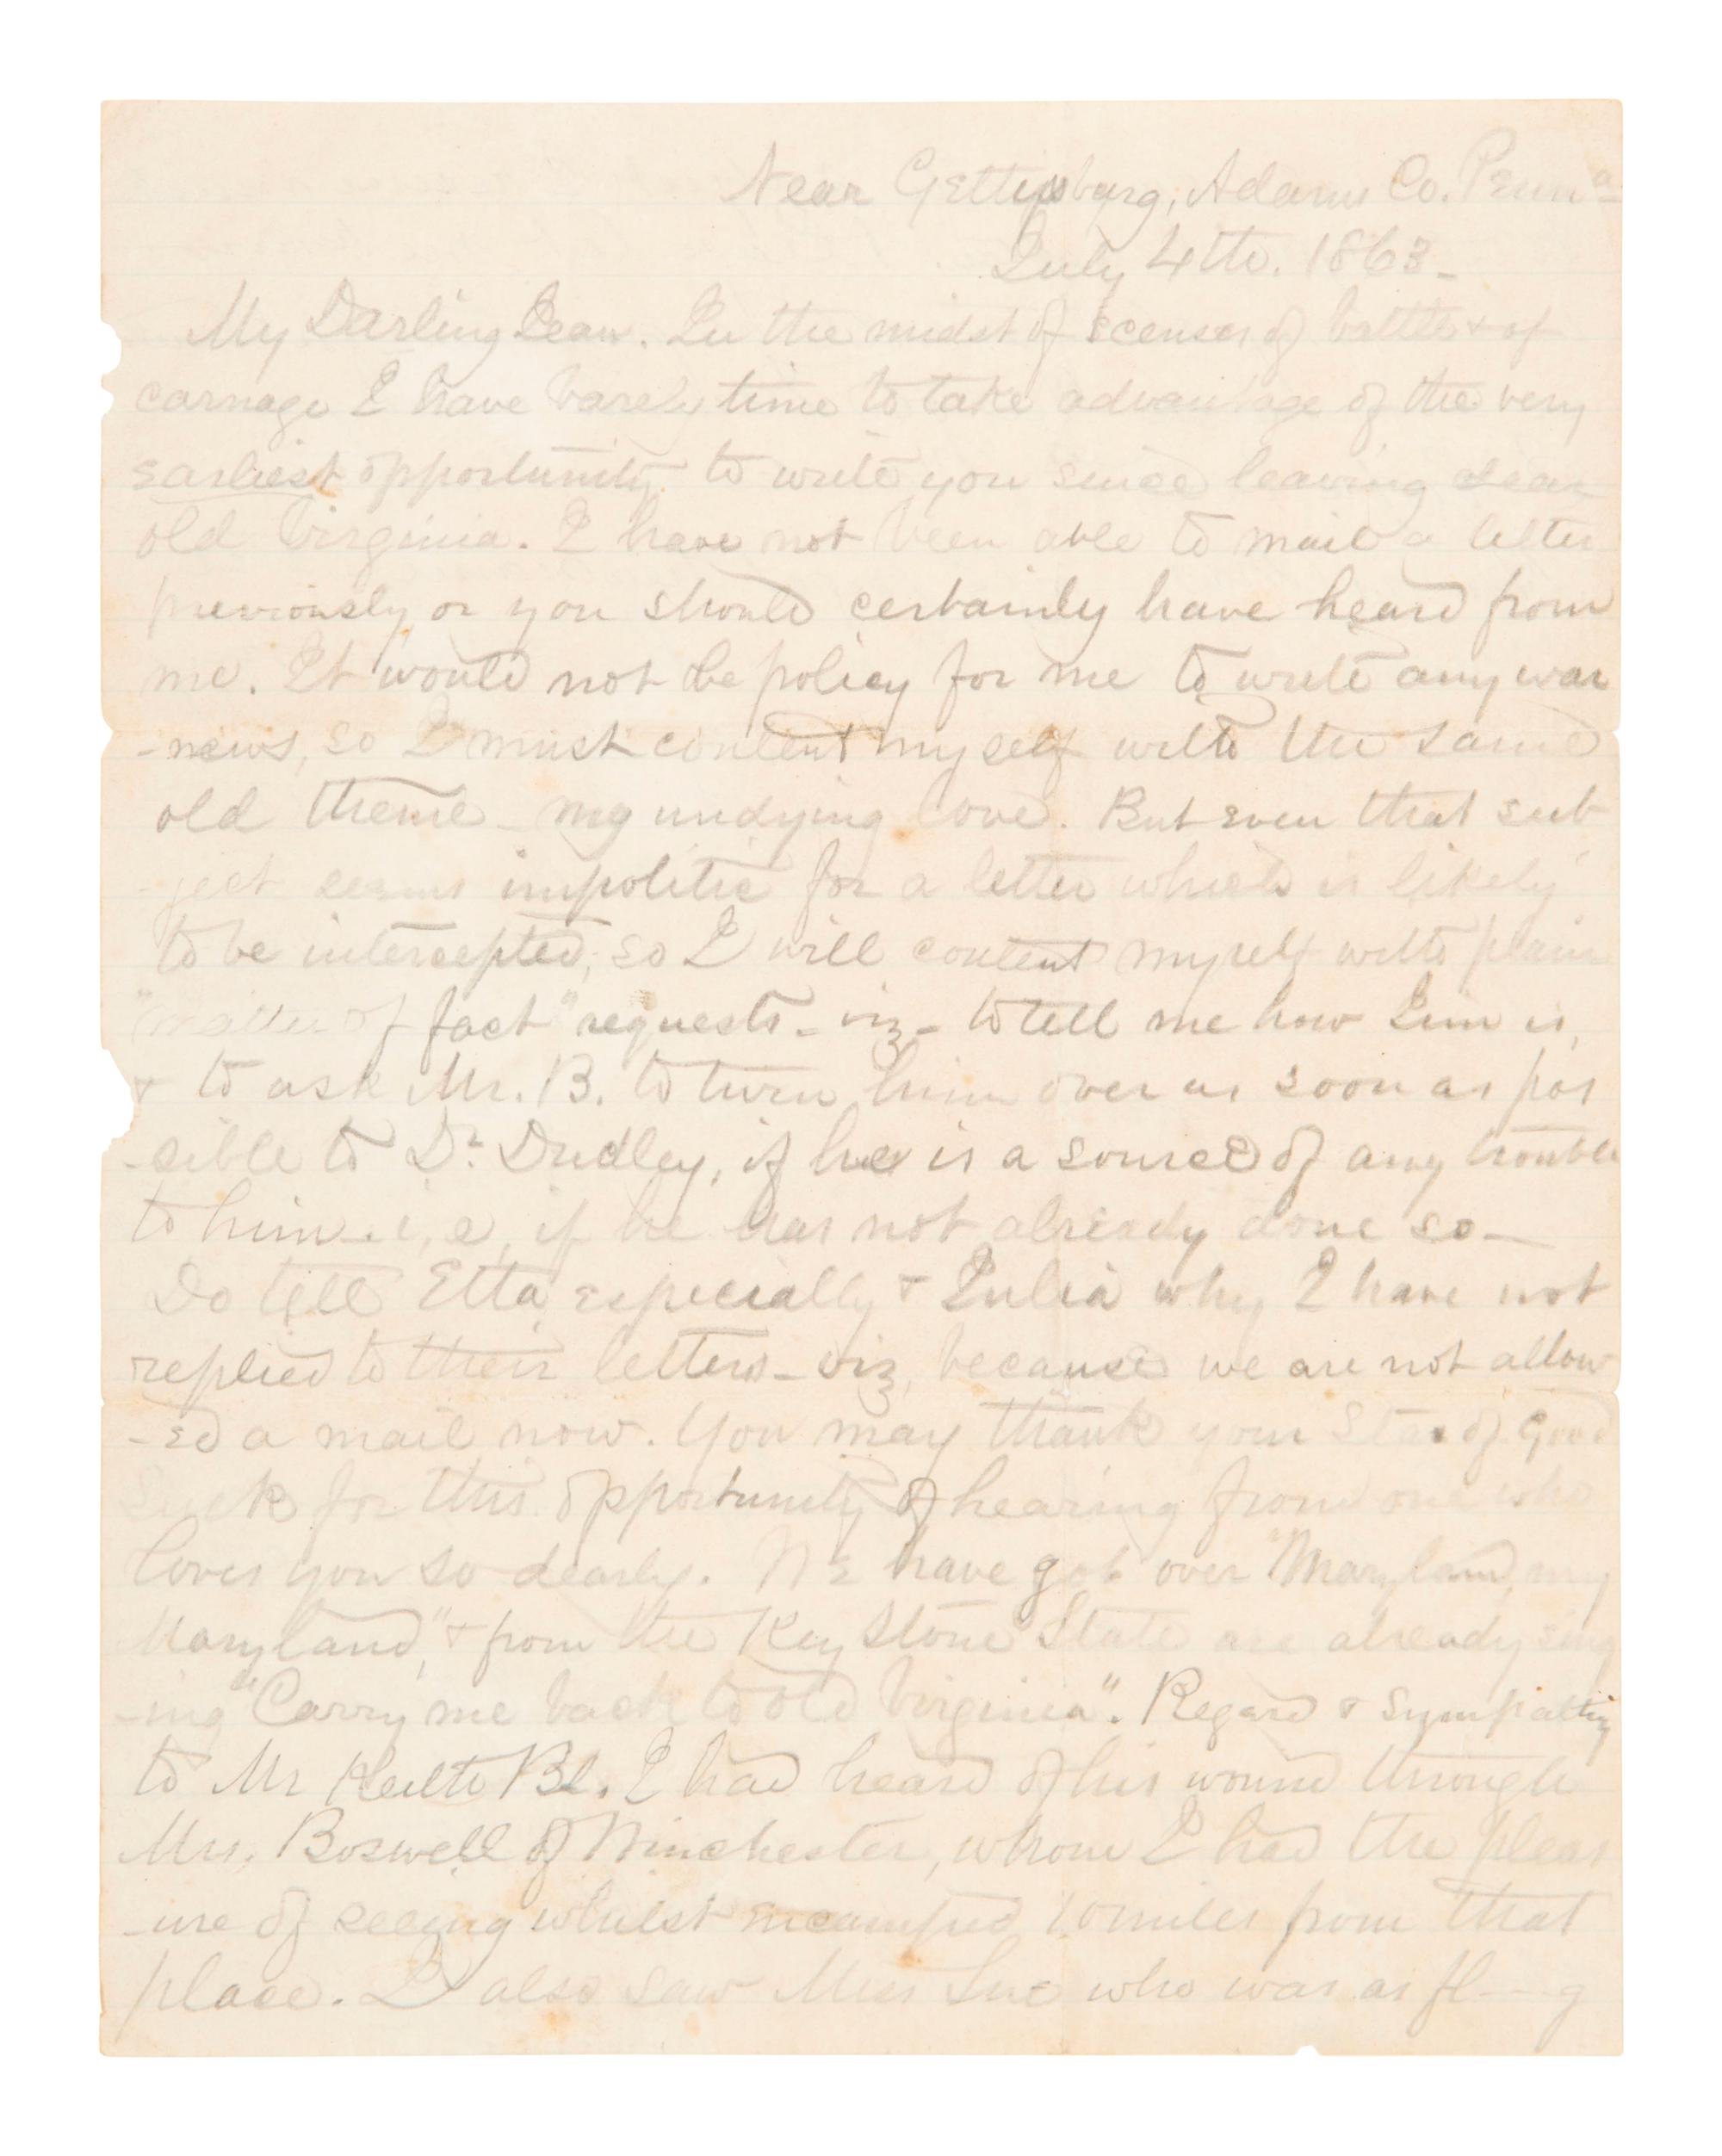 Near Gettysburg, Adams Co. Penna
July 4th. 1863-
My Darling Jean. In the midst of scenes of battle & of
carnage I have barely time to take advantage of the very
earliest opportunity to write you since leaving dear
old Virginia. I have not been able to mail a letter
previously or you should certainly have heard from
me. It would not be policy for me to write any war
-news, so I must content myself with the same
old theme - my undying love. But even that sub
-ject seems impolitic for a letter which is likely
to be intercepted, so I will content myself with plain
"matter of fact" requests - viz - to tell me how Jim is,
& to ask Mr. B. to turn him over as soon as pos
-sible to Dr. Dudley, if he is a source of any trouble
to him - i, e, if he has not already done so -
Do tell Etta especially & Julia why I have not
replied to their letters - viz, because we are not allow
-ed a mail now. You may thank your Star of good
Luck for this opportunity of hearing from one who
loves you so dearly. We have got over "Maryland, my
Maryland," & from the Key Stone State are already sing
-ing "Carry me back to old Virginia". Regard & sympathy
to Mr Keith Bl. I had heard of his wound through
Mrs. Boswell of Winchester, whom I had the pleas
-ure of seeing whilst encamped 10 miles from that
place. I also saw Miss Sue who was as fl--g